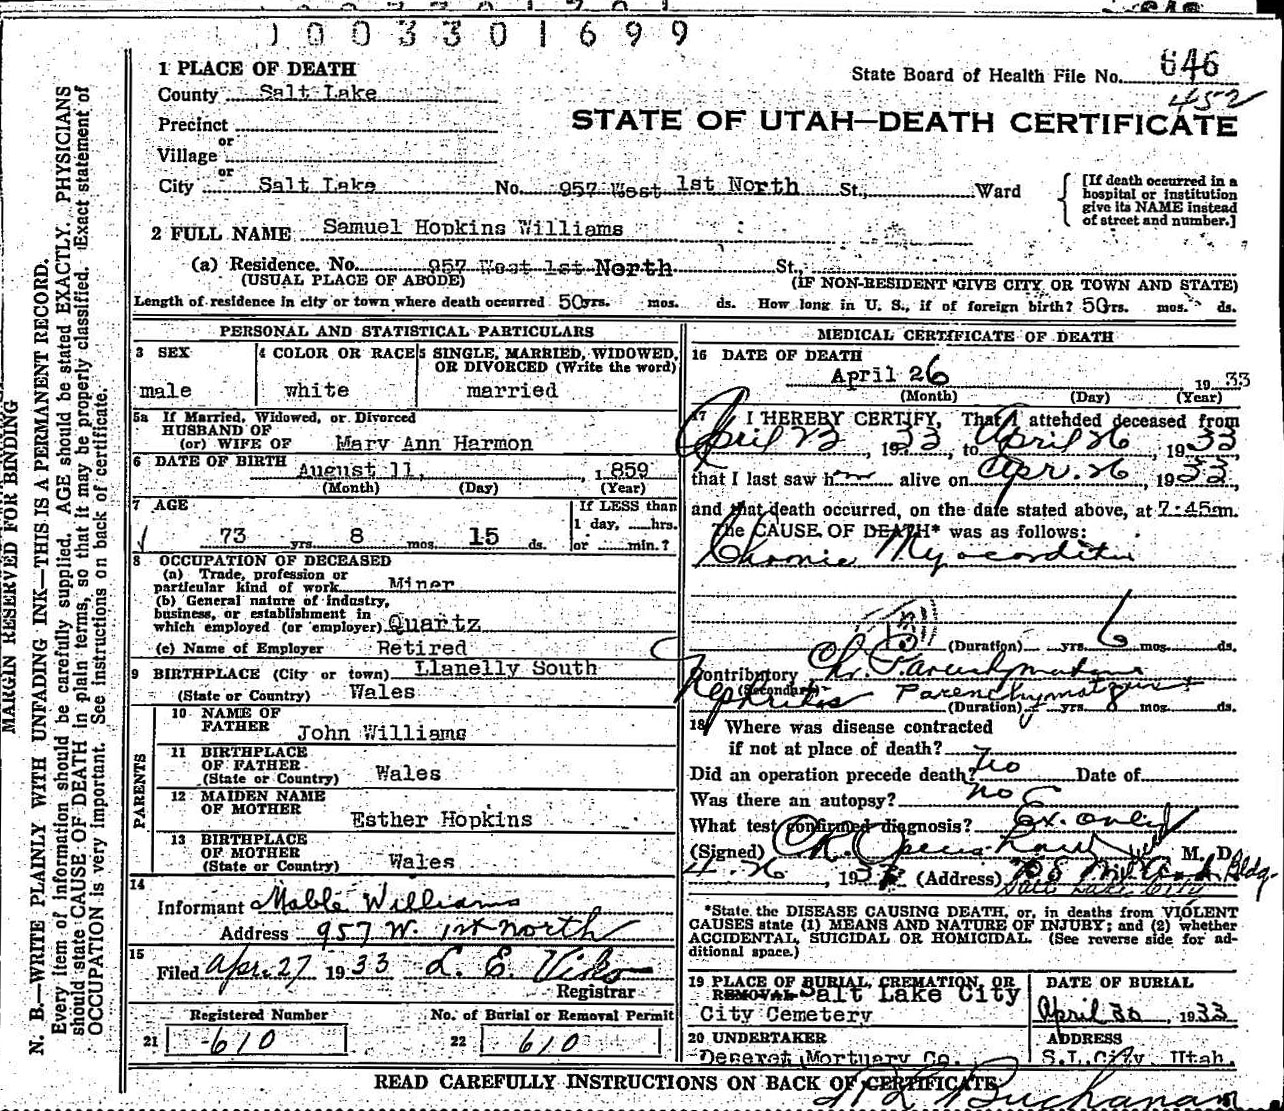 1003301699
State Board of Health File No. 646
452
STATE OF UTAH—DEATH CERTIFICATE
1 PLACE OF DEATH
County Salt Lake
Precinct
or
Village
or
City Salt Lake No. 957 West 1st North St., Ward
[If death occurred in a hospital or institution give its NAME instead of street and number.]
2 FULL NAME Samuel Hopkins Williams
(a) Residence. No. 957 West 1st North St.,
(USUAL PLACE OF ABODE) (IF NON-RESIDENT GIVE CITY OR TOWN AND STATE)
Length of residence in city or town where death occurred 50 yrs. mos. ds. How long in U. S., if of foreign birth? 50 yrs. mos. ds.
PERSONAL AND STATISTICAL PARTICULARS
3 SEX
male
4 COLOR OR RACE
white
5 SINGLE, MARRIED, WIDOWED, OR DIVORCED (Write the word)
married
5a If Married, Widowed, or Divorced
HUSBAND OF
(or) WIFE OF Mary Ann Harmon
6 DATE OF BIRTH August 11, 1859
(Month) (Day) (Year)
7 AGE
73 yrs. 8 mos. 15 ds.
If LESS than
1 day, hrs.
or min.?
8 OCCUPATION OF DECEASED
(a) Trade, profession or
particular kind of work Miner
(b) General nature of industry,
business, or establishment in
which employed (or employer) Quartz
(c) Name of Employer Retired
9 BIRTHPLACE (City or town) Llanelly South
(State or Country) Wales
PARENTS
10 NAME OF
FATHER John Williams
11 BIRTHPLACE
OF FATHER
(State or Country) Wales
12 MAIDEN NAME
OF MOTHER Esther Hopkins
13 BIRTHPLACE
OF MOTHER
(State or Country) Wales
14
Informant Mable Williams
Address 957 W. 1st North
15
Filed Apr. 27 1933
Registrar
Registered Number
21 610
No. of Burial or Removal Permit
22 610
MEDICAL CERTIFICATE OF DEATH
16 DATE OF DEATH
April 26 1933
(Month) (Day) (Year)
17 I HEREBY CERTIFY, That I attended deceased from
April 23, 1933, to April 26, 1933
that I last saw him alive on Apr. 26, 1933,
and that death occurred, on the date stated above, at 7:45am.
The CAUSE OF DEATH* was as follows:
Chronic Myocarditis
(Duration) yrs. 6 mos. ds.
Contributory Ch. Parenchymatous
(Secondary) Nephritis Parenchymatous
(Duration) yrs. mos. ds.
18 Where was disease contracted
if not at place of death?
Did an operation precede death? No Date of
Was there an autopsy? no
What test confirmed diagnosis? Ex. only
(Signed) M. D.
4-26, 19 (Address) Bldg.
Salt Lake City
*State the DISEASE CAUSING DEATH, or, in deaths from VIOLENT
CAUSES state (1) MEANS AND NATURE OF INJURY; and (2) whether
ACCIDENTAL, SUICIDAL OR HOMICIDAL. (See reverse side for ad-
ditional space.)
19 PLACE OF BURIAL, CREMATION, OR
REMOVAL Salt Lake City
City Cemetery
DATE OF BURIAL
April 30, 1933
20 UNDERTAKER
Deseret Mortuary Co.
ADDRESS
S.L.City, Utah.
READ CAREFULLY INSTRUCTIONS ON BACK OF CERTIFICATE
Buchanan
MARGIN RESERVED FOR BINDING
N. B.—WRITE PLAINLY WITH UNFADING INK—THIS IS A PERMANENT RECORD.
Every item of information should be carefully supplied. AGE should be stated EXACTLY. PHYSICIANS
should state CAUSE OF DEATH in plain terms, so that it may be properly classified. Exact statement of
OCCUPATION is very important. See instructions on back of certificate.